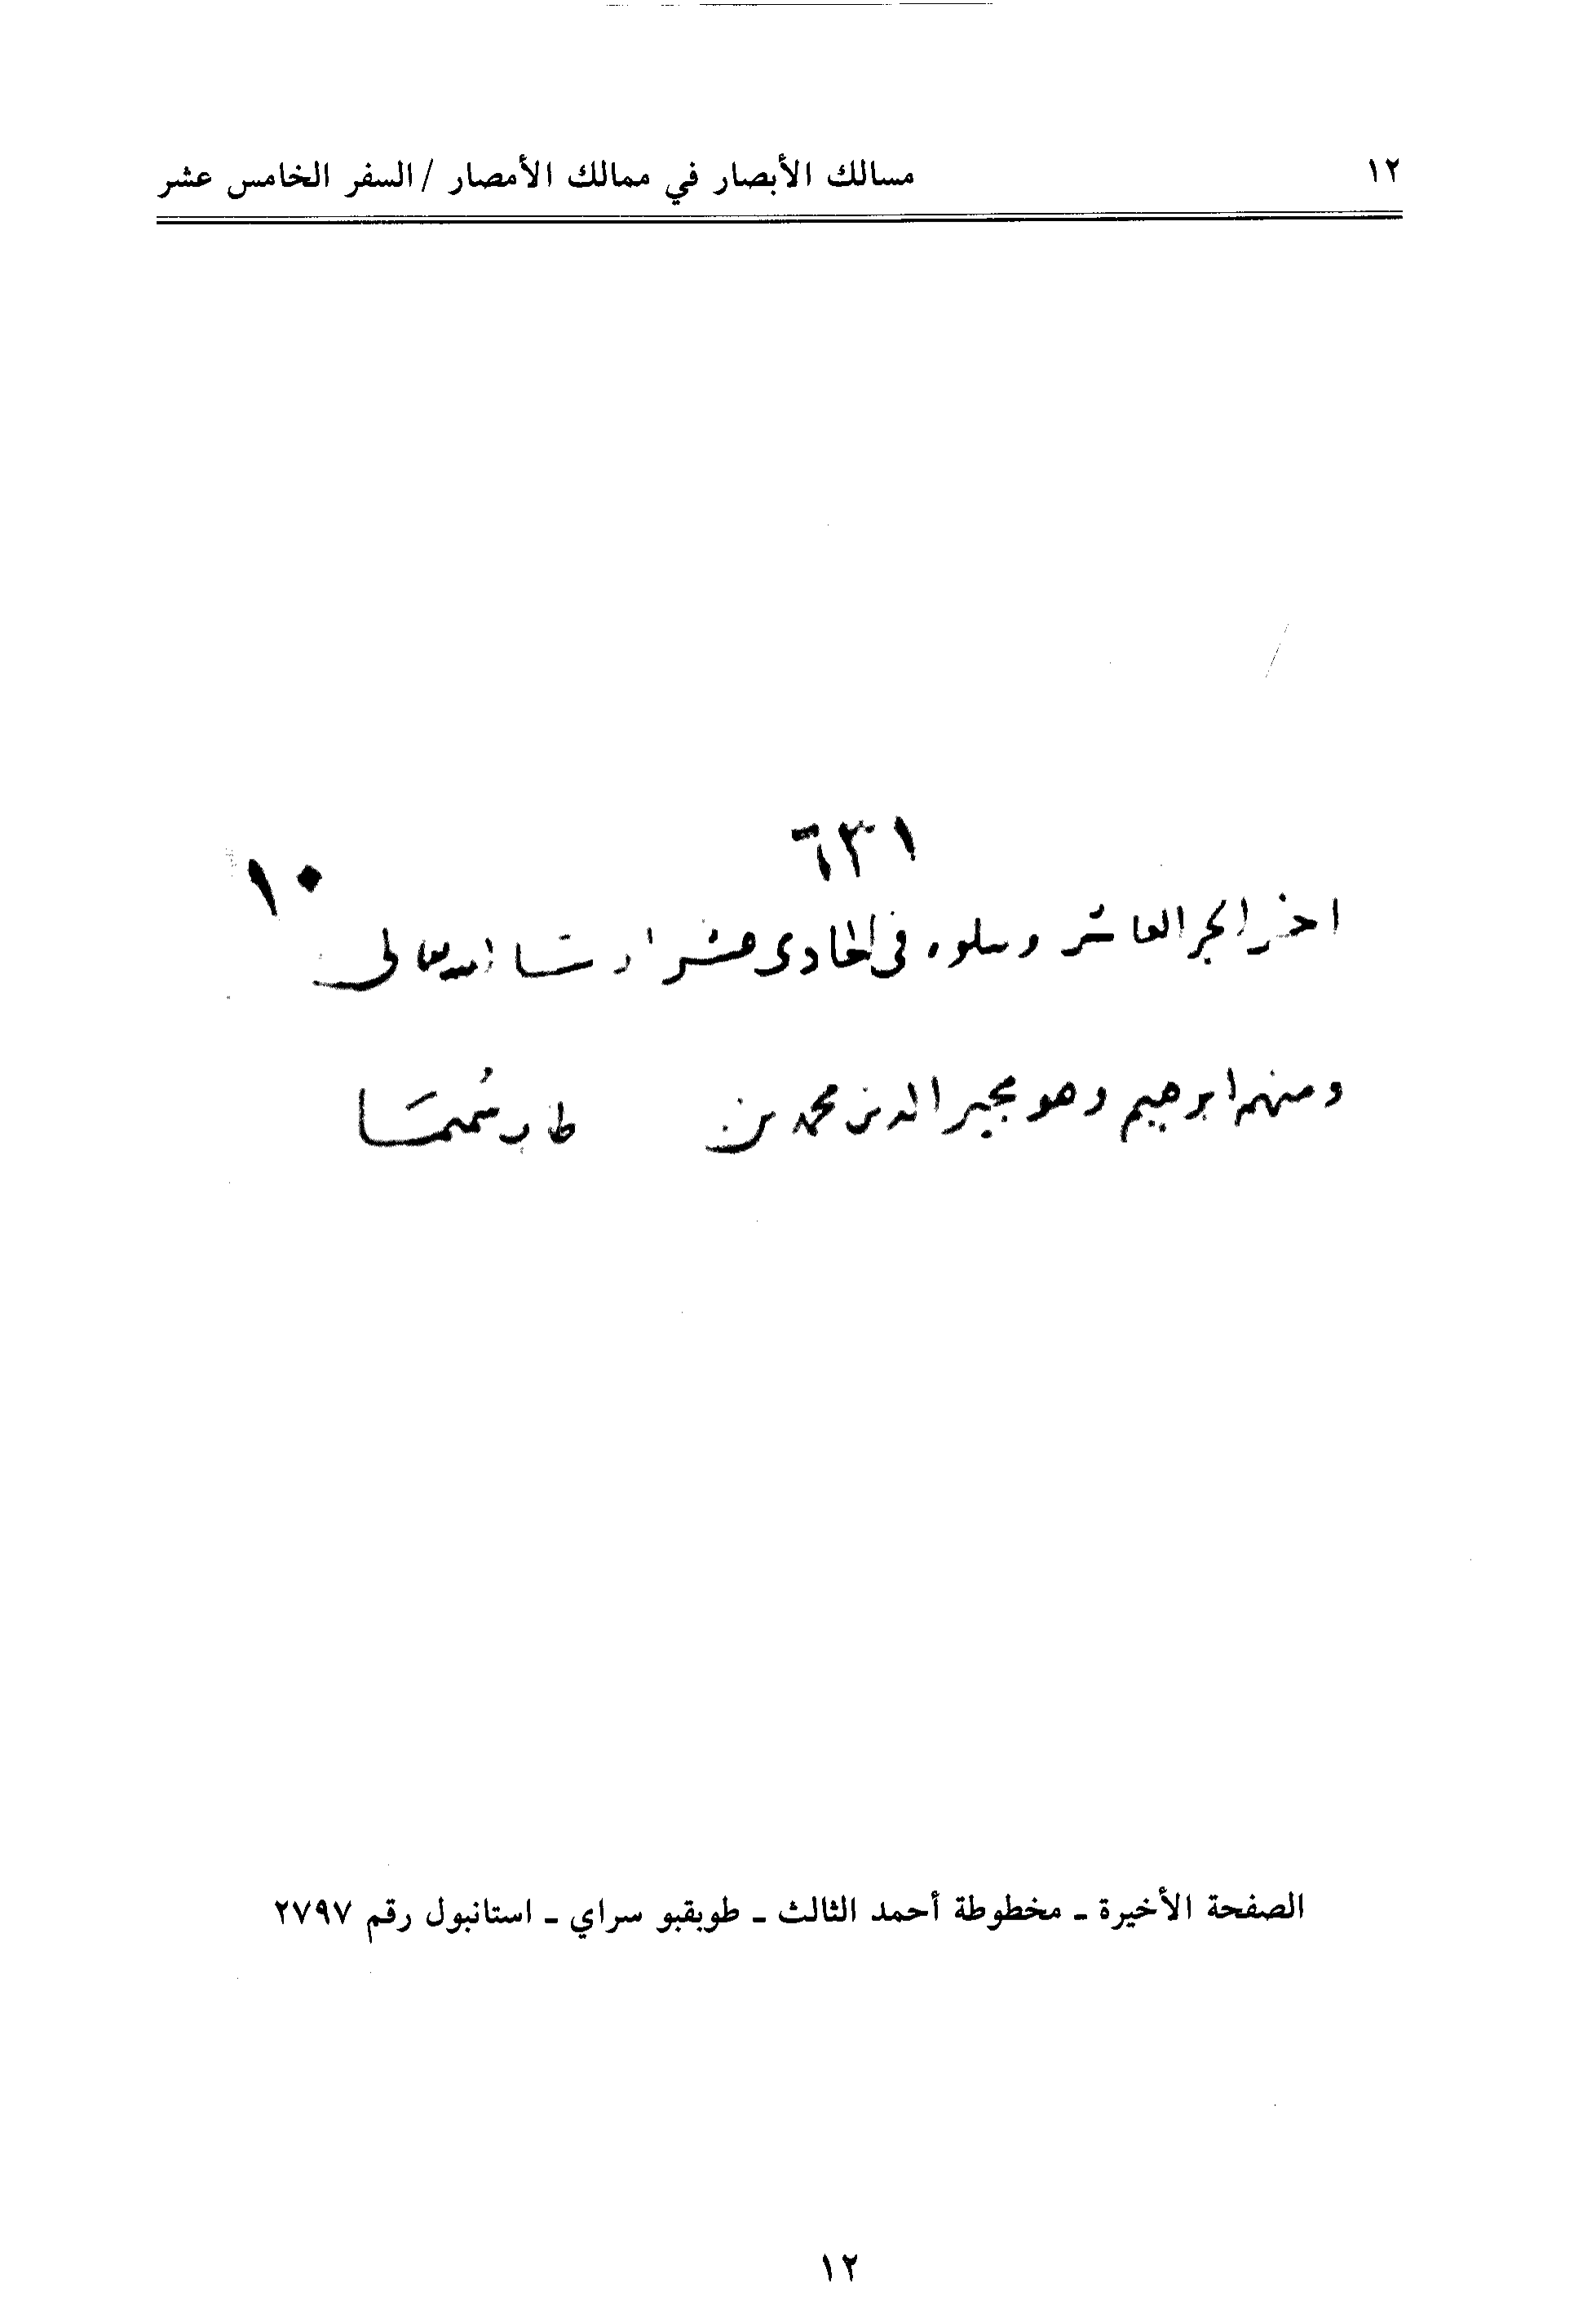 ١٢
مسالك الأبصار في ممالك الأمصار / السفر الخامس عشر
٦٣١
١٠
اخر الجز العاشر وىىلوه فى الحادى عشر ان شا الله تعالى
ومنهم ابرهيم وهو مجير الدين محمد بن
الصفحة الأخيرة - مخطوطة أحمد الثالث - طوبقبو سراي - استانبول رقم ٢٧٩٧
١٢